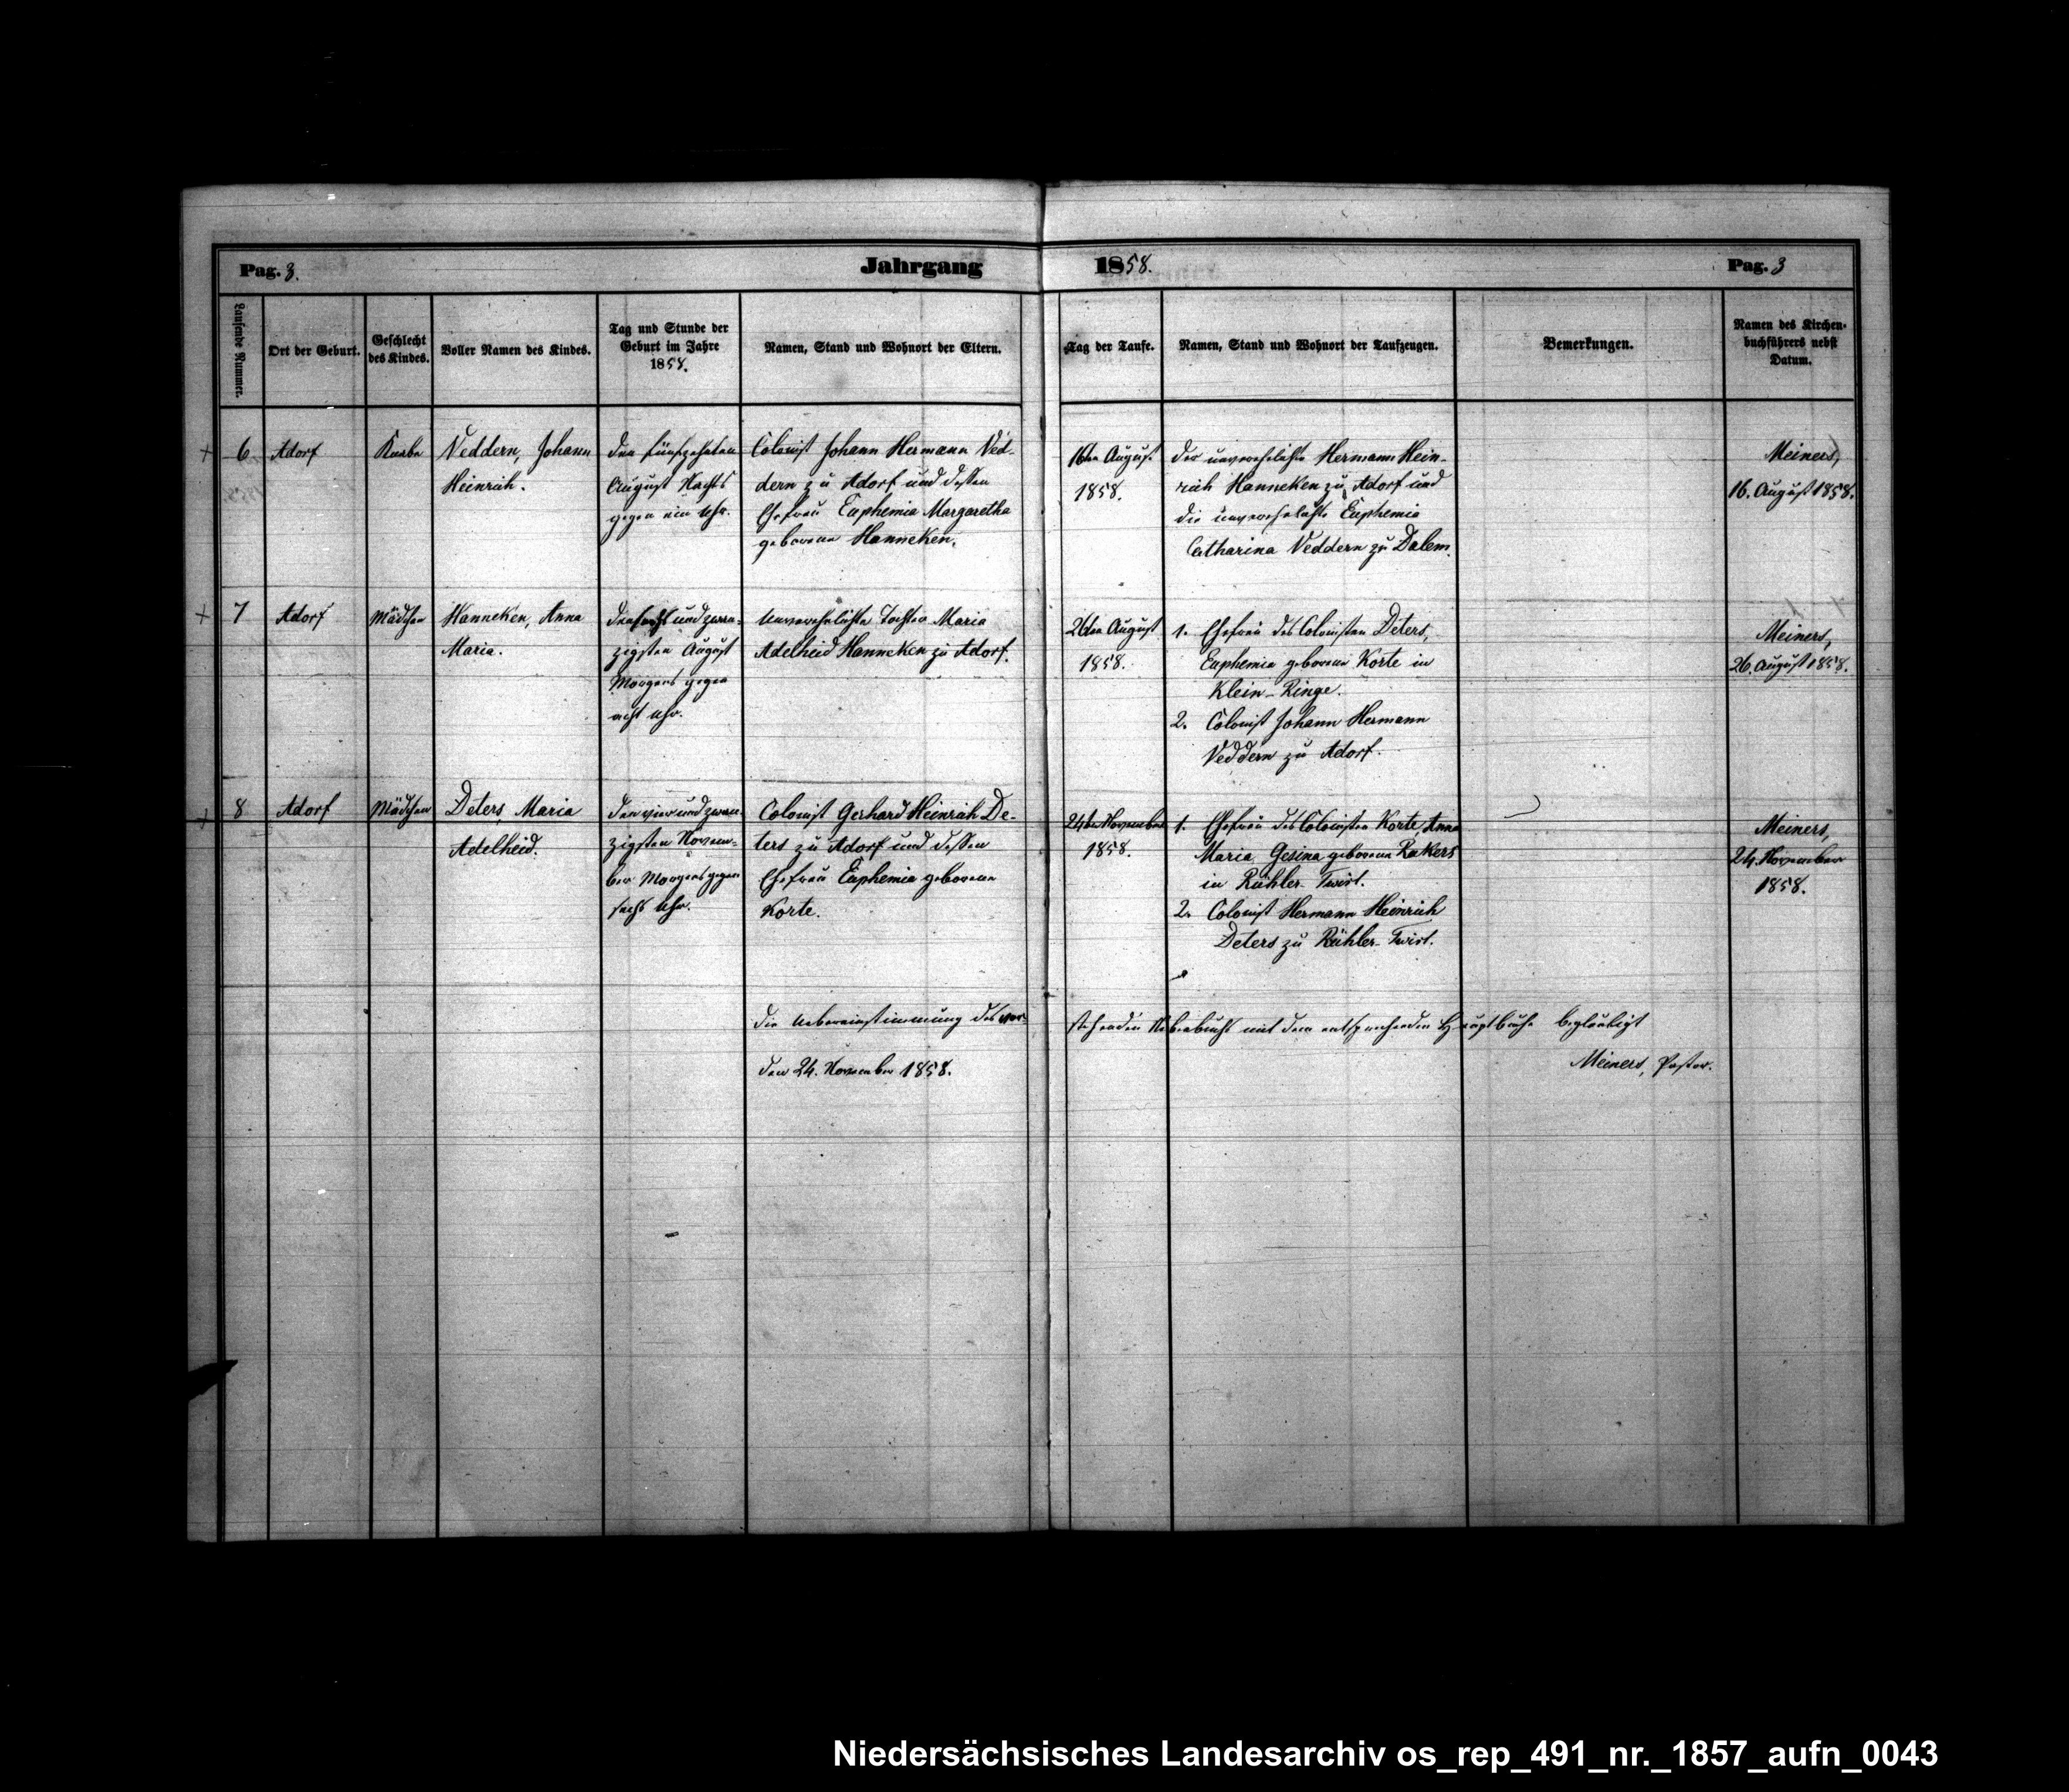 Pag. 3.
Jahrgang 1858.
Pag. 3
Laufende Nummer.
Ort der Geburt.
Geschlecht
des Kindes.
Voller Namen des Kindes.
Tag und Stunde der
Geburt im Jahre
1858.
Namen, Stand und Wohnort der Eltern.
Tag der Taufe.
Namen, Stand und Wohnort der Taufzeugen.
Bemerkungen.
Namen des Kirchen-
buchführers nebst
Datum.
+ 6
Adorf
Knabe
Veddern, Johann
Heinrich.
den fünfzehnten
August Nachts
gegen ein Uhr.
Colonist Johann Hermann Ved-
dern zu Adorf und dessen
Ehefrau Euphemia Margaretha
geborene Hanneken.
16ten August
1858.
der unverehelichte Hermann Hein-
rich Hanneken zu Adorf und
die unverehelichte Euphemia
Catharina Veddern zu Dalem.
Meiners,
16. August 1858.
+ 7
Adorf
Mädchen
Hanneken, Anna
Maria.
den sechs und zwan-
zigsten August
Morgens gegen
acht Uhr.
Unverehelichte Tochter Maria
Adelheid Hanneken zu Adorf.
26ten August
1858.
1. Ehefrau des Colonisten Deters,
Euphemia geborene Korte in
Klein-Ringe.
2. Colonist Johann Hermann
Veddern zu Adorf.
Meiners,
26. August 1858.
+ 8
Adorf
Mädchen
Deters Maria
Adelheid.
den vier und zwan-
zigsten Novem-
ber Morgens gegen
sechs Uhr.
Colonist Gerhard Heinrich De-
ters zu Adorf und dessen
Ehefrau Euphemia geborene
Korte.
24ten November
1858.
1. Ehefrau des Colonisten Korte, Anna
Maria Gesina geborene Rakers
in Rühler-Twist.
2. Colonist Hermann Heinrich
Deters zu Rühler-Twist.
Meiners,
24. November
1858.
Die Uebereinstimmung des vor-
stehenden Nebenbuchs mit dem entsprechenden Hauptbuche beglaubigt
den 24. November 1858.
Meiners, Pastor.
Niedersächsisches Landesarchiv os_rep_491_nr._1857_aufn_0043